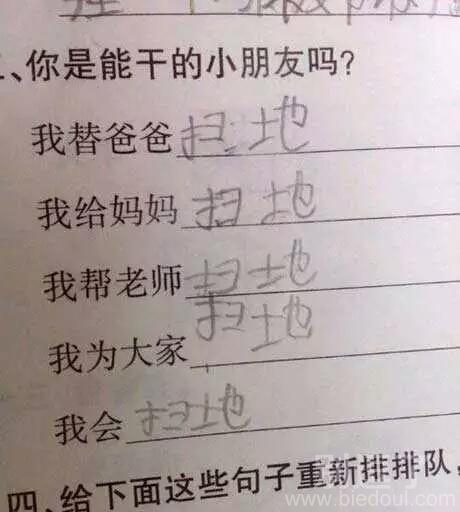 、你是能干的小朋友吗?
我替爸爸扫地
我给妈妈扫地
我帮老师扫地
我为大家扫地
我会扫地
四、给下面这些句子重新排排队,
www.biedoul.com